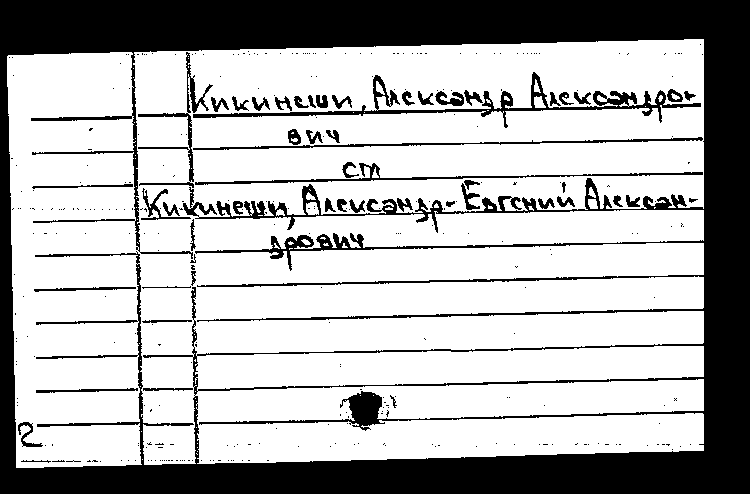 Кикинеши, Александр Александро-
вич
см
Кикинеши, Александр-Евгений Алексан-
дрович
2